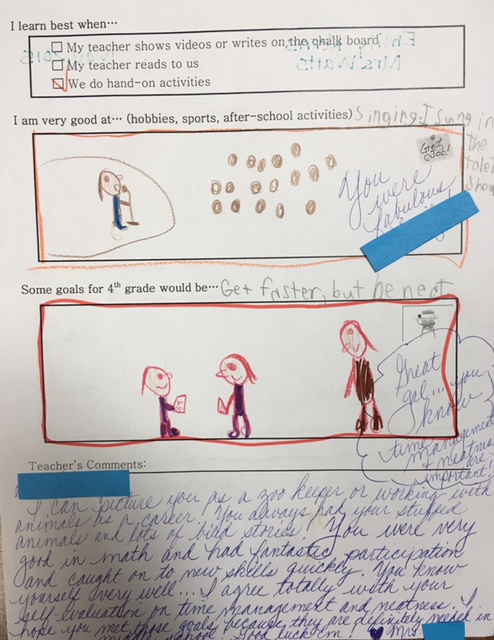 I learn best when…
My teacher shows videos or writes on the chalk board
My teacher reads to us
We do hand-on activities
I am very good at… (hobbies, sports, after-school activities) Singing. I sung in the talent show
Good Job!
You were fabulous
Some goals for 4th grade would be… Get faster, but be neat
Great goal... you know time management & neatness are important!
Teacher's Comments:
I can picture you as a zoo keeper or working with
animals as a career. You always had your stuffed
animals and lots of bird stories! You were very
good in math and had fantastic participation
and caught on to new skills quickly. You know
yourself very well... I agree totally with your
self-evaluation on time management and neatness. I
hope you met those goals, because they are definitely needed in
school. Good luck
Mrs.